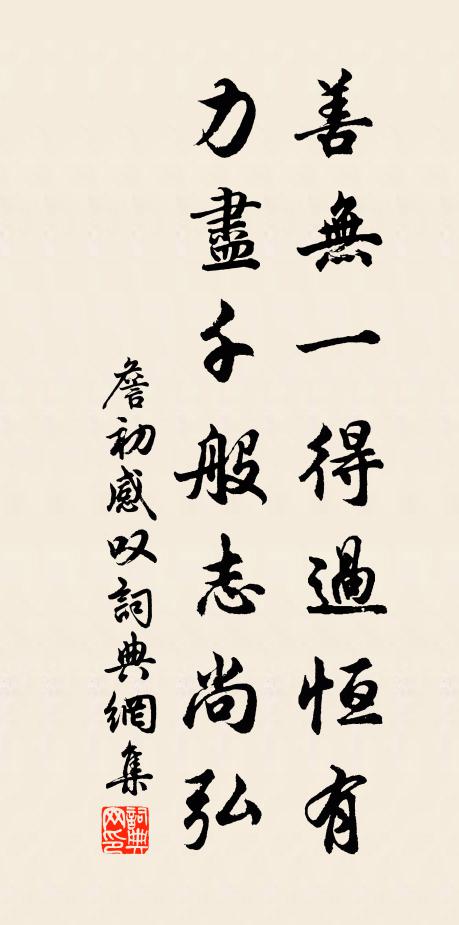 善無一得過恒有
力盡千般志尚弘
詹初感叹詞典網集
詞典
网印